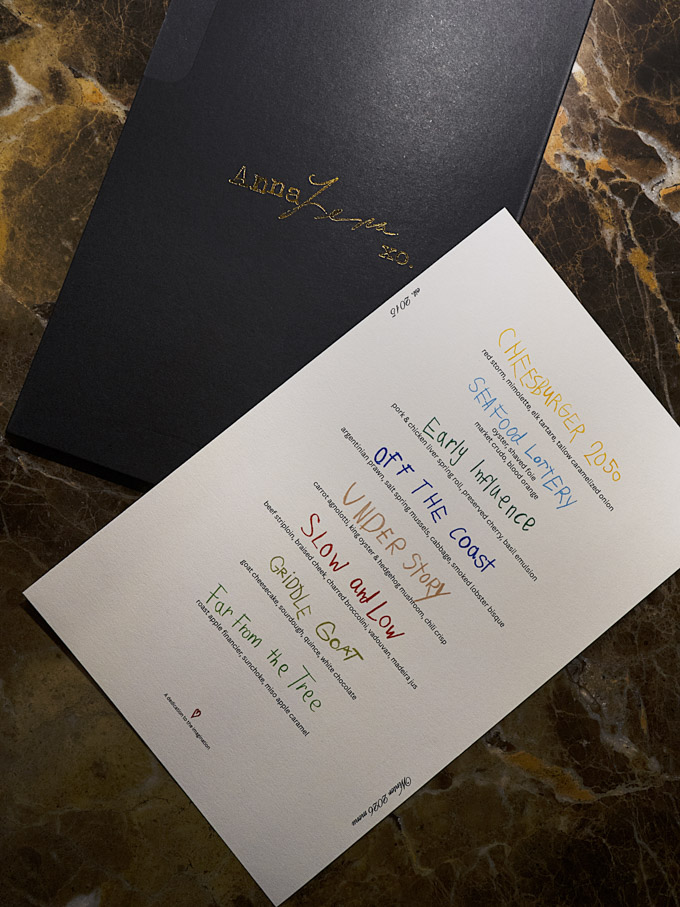 Anna Lena
xo.
est. 2015
CHEESBURGER 2050
red storm, mimolette, elk tartare, tallow caramelized onion
SEAFOOD LORTERY
oyster, shaved foie
market crudo, blood orange
Early Influence
pork & chicken liver spring roll, preserved cherry, basil emulsion
OFF THE COAST
argentinian prawn, salt spring mussels, cabbage, smoked lobster bisque
UNDER STORY
carrot agnolotti, king oyster & hedgehog mushroom, chili crisp
SLOW and LOW
beef striploin, braised cheek, charred broccolini, vadouvan, madeira jus
GRIDDLE GOAT
goat cheesecake, sourdough, quince, white chocolate
Far From the Tree
roast apple financier, sunchoke, miso apple caramel
A dedication to the imagination
Winter 2026 menu